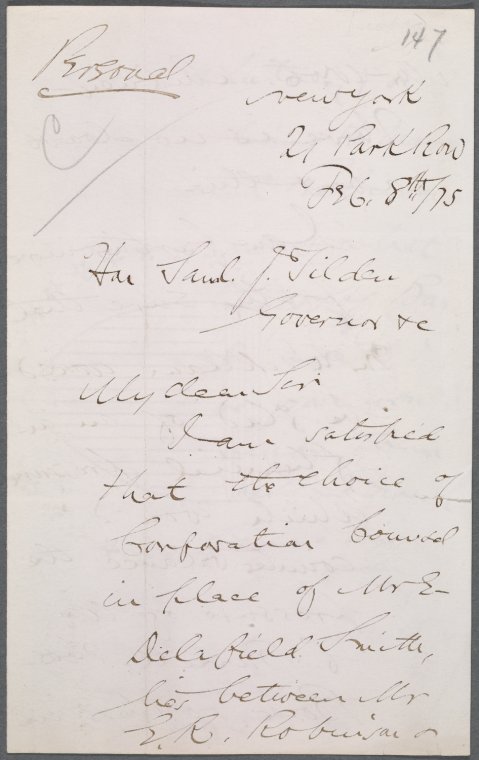 147
Personal
New York
21 Park Row
Feb. 8th/75
Hon Saml. J. Tilden
Governor &c
My dear Sir
I am satisfied
that the choice of
Corporation Counsel
in place of Mr E-
Delafield Smith,
lies between Mr
E. R. Robinson &